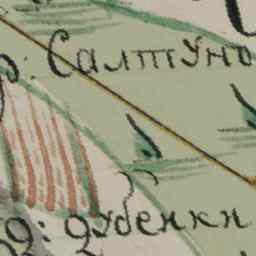 р: Салтуно
д: дубенки